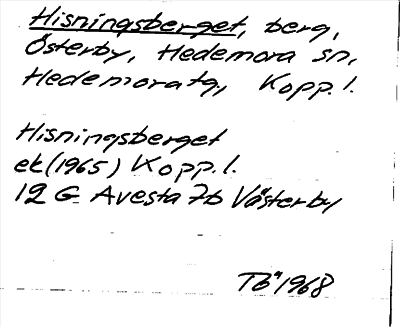 Hisningsberget, berg,
Österby, Hedemora sn,
Hedemora tg, Kopp. l.
Hisningsberget
ek (1965) Kopp. l.
12 G Avesta 7b Västerby
Tö 1968